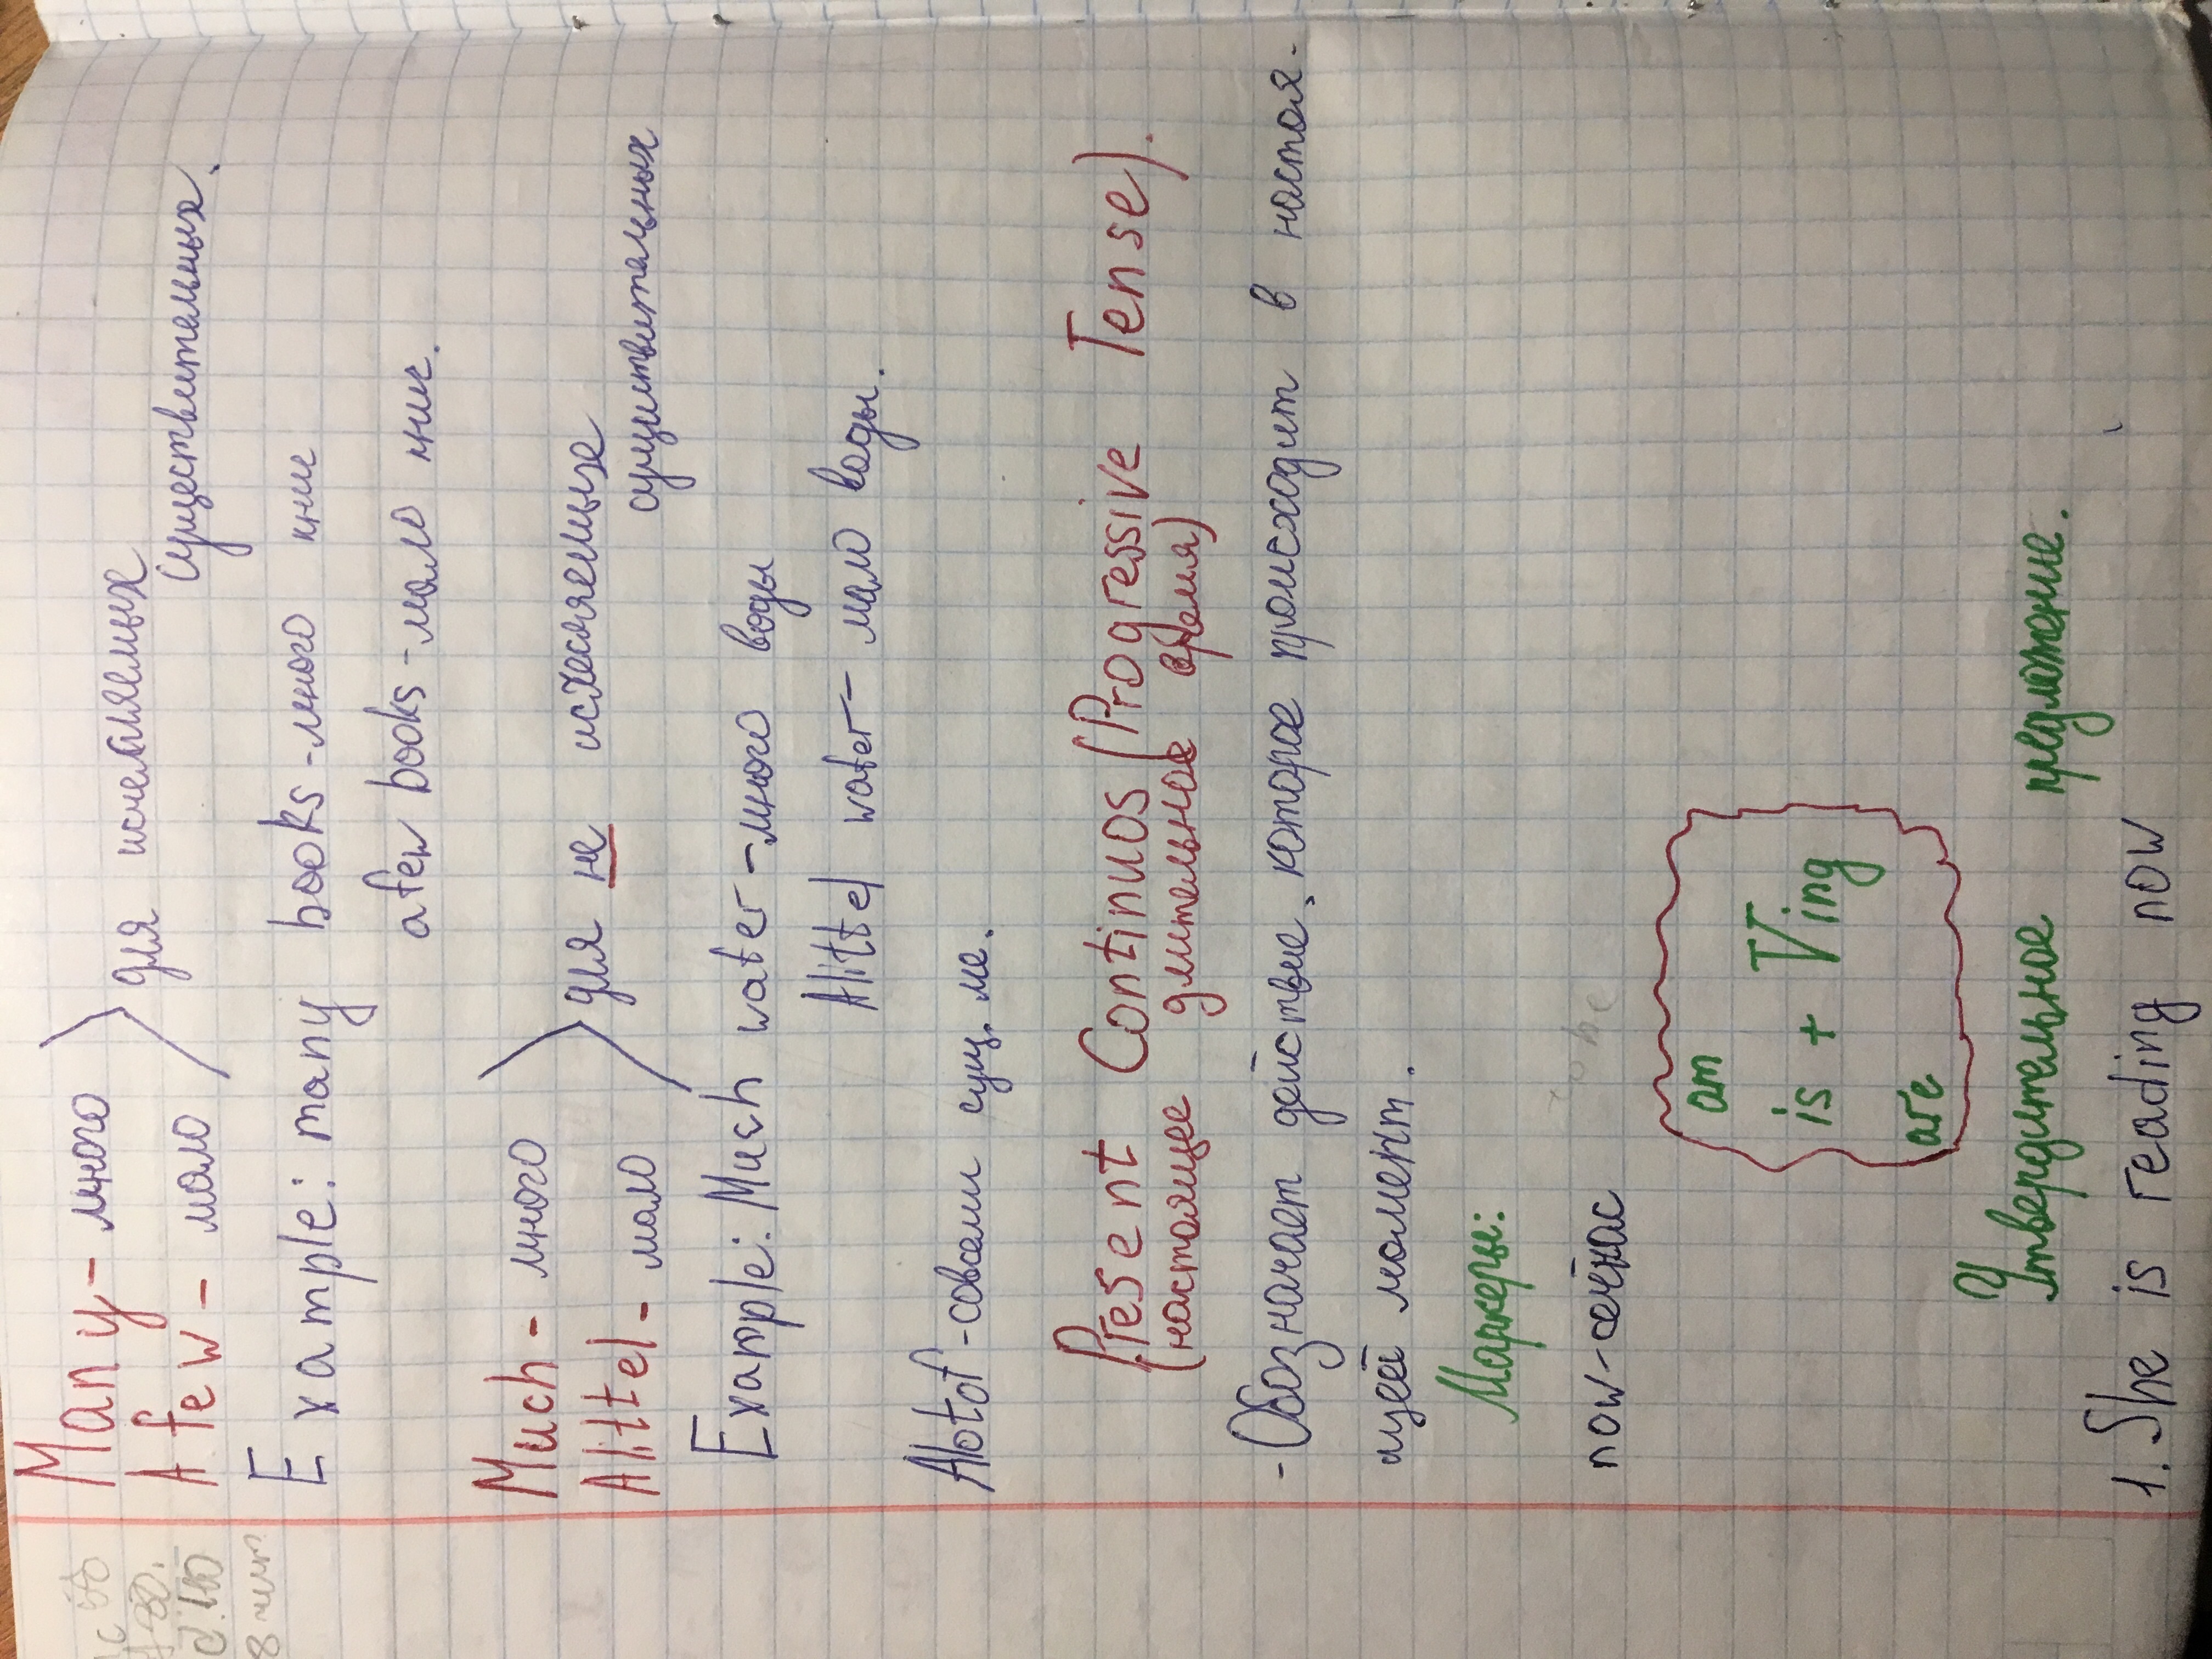 Many - много
для исчеляемых
A few - мало
существительных.
Example: many books - много книг
a few books - мало книг.
Much - много
для не исчесляемые
A littel - мало
существительных
Example: Much water - много воды
A littel water - мало воды.
Alotof - совсем сущ. ме.
Present Continuos (Progressive Tense).
(настоящее длительное время)
- Обозначает действие, которое происходит в настоя-
щей момент.
Маркеры:
now - сейчас
am
is + Ving
are
Утвердительное предложение.
1. She is reading now